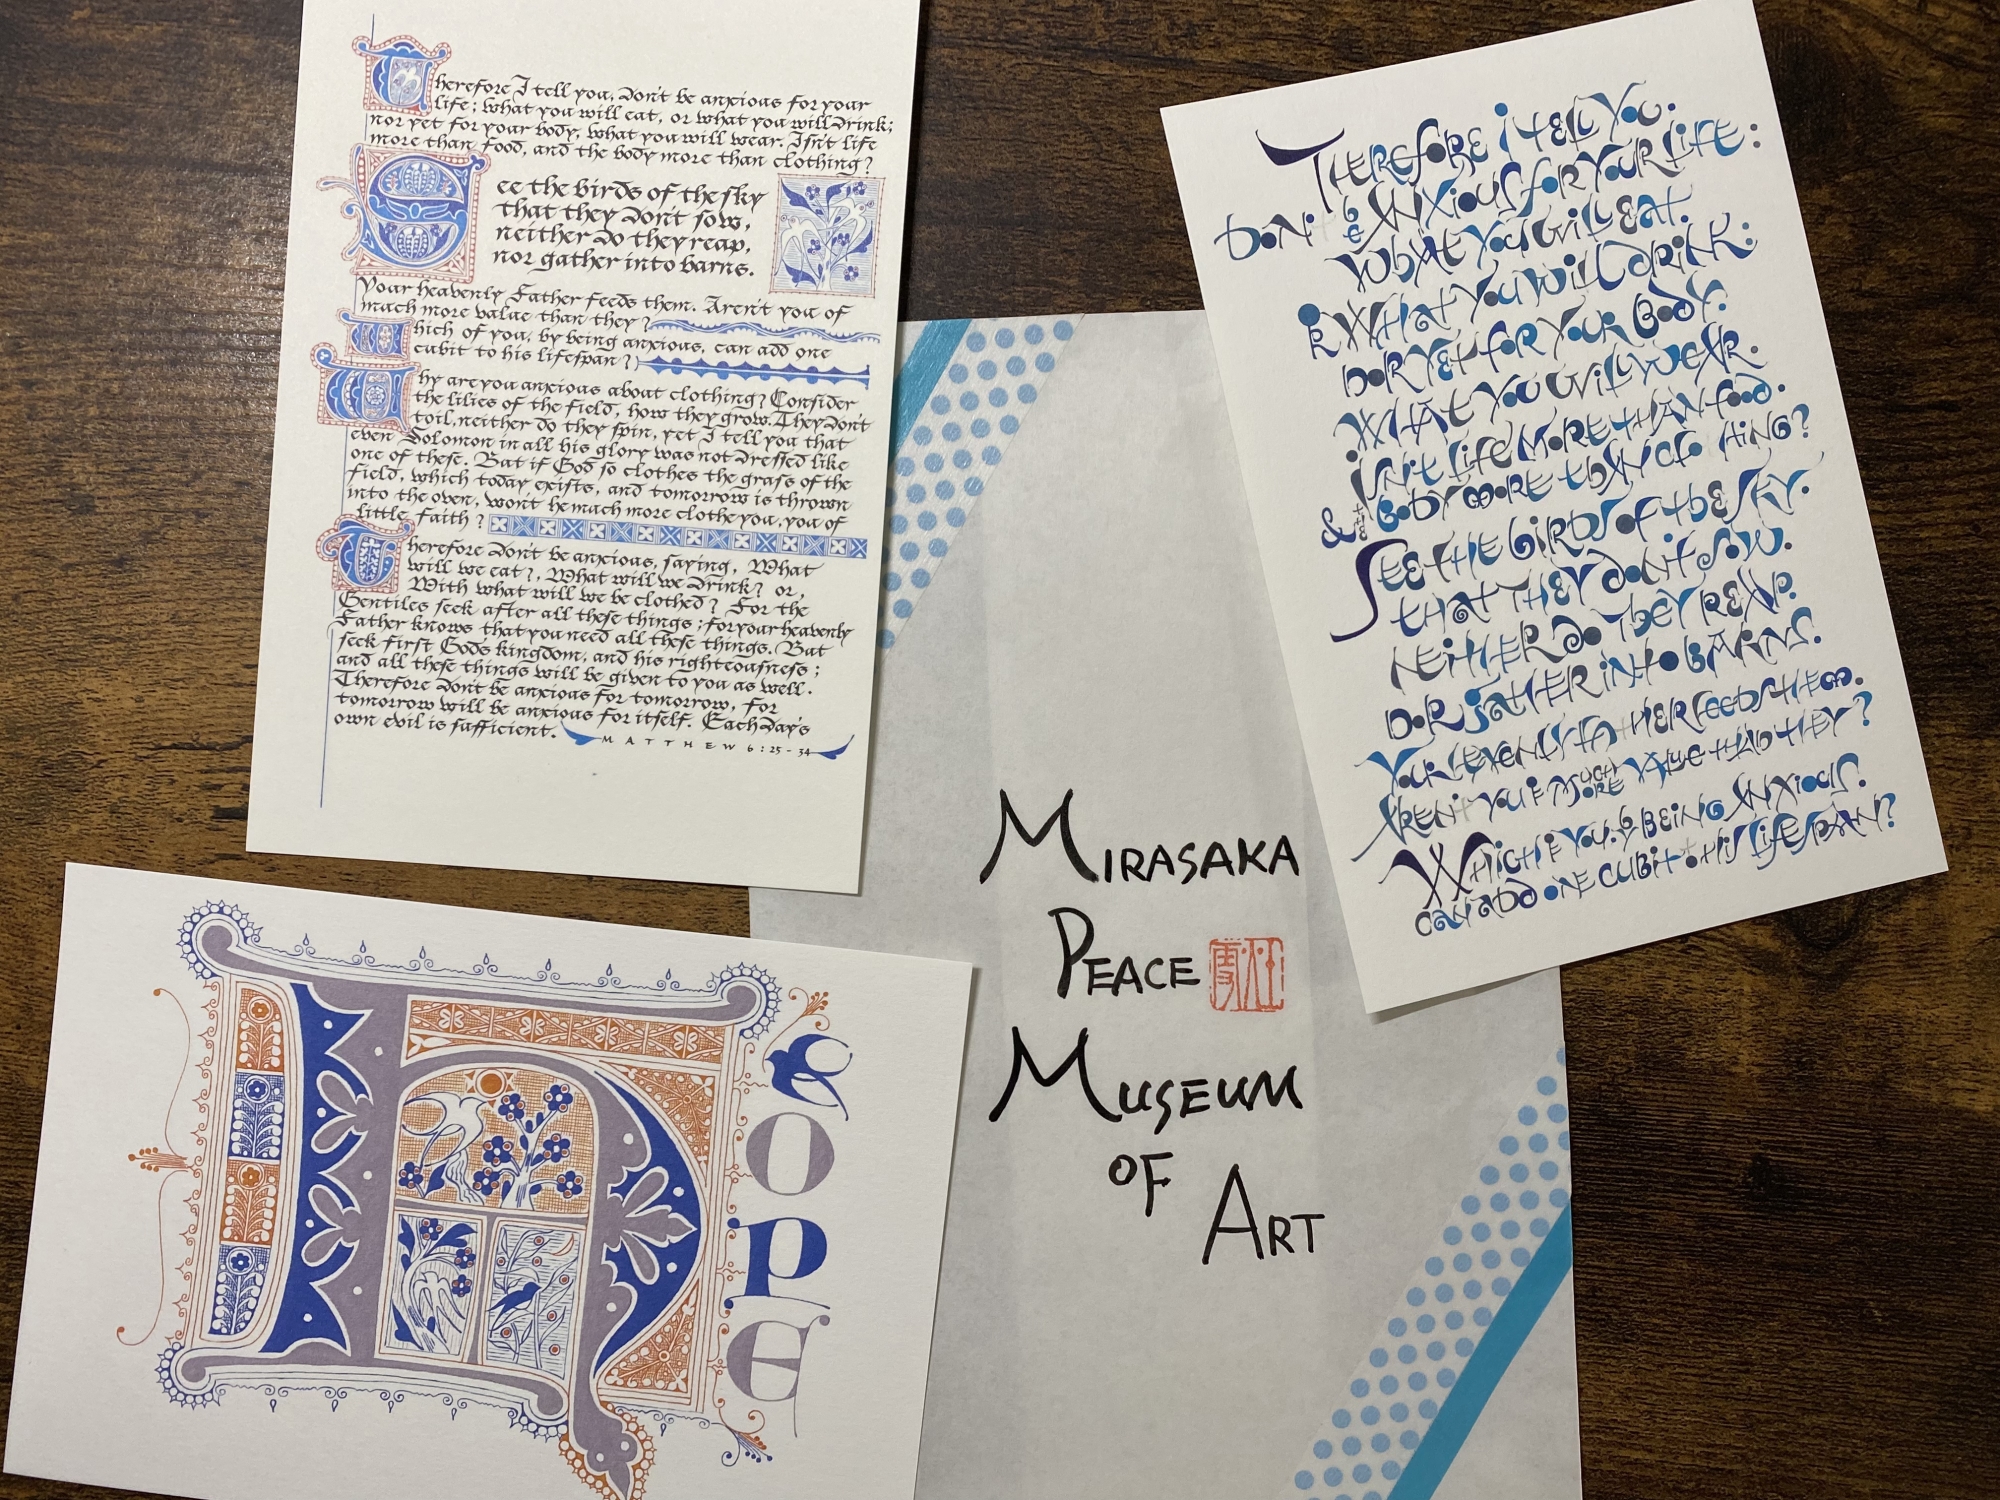 Therefore I tell you, don't be anxious for your
life; what you will eat, or what you will drink;
nor yet for your body, what you will wear. Isn't life
more than food, and the body more than clothing?
See the birds of the sky
that they don't sow,
neither do they reap,
nor gather into barns.
Your heavenly Father feeds them. Aren't you of
much more value than they?
Which of you, by being anxious, can add one
cubit to his lifespan?
Why are you anxious about clothing? Consider
the lilies of the field, how they grow. They don't
toil, neither do they spin, yet I tell you that
even Solomon in all his glory was not dressed like
one of these. But if God so clothes the grass of the
field, which today exists, and tomorrow is thrown
into the oven, won't he much more clothe you, you of
little faith?
Therefore don't be anxious, saying, What
will we eat?, What will we drink? or,
With what will we be clothed? For the
Gentiles seek after all these things; for your heavenly
Father knows that you need all these things. But
seek first God's kingdom, and his righteousness;
and all these things will be given to you as well.
Therefore don't be anxious for tomorrow, for
tomorrow will be anxious for itself. Each day's
own evil is sufficient.
MATTHEW 6:25-34
THEREFORE I TELL YOU.
DON'T BE ANXIOUS FOR YOUR LIFE:
WHAT YOU WILL EAT.
OR WHAT YOU WILL DRINK:
NOR YET FOR YOUR BODY.
WHAT YOU WILL WEAR.
ISN'T LIFE MORE THAN FOOD.
& THE BODY MORE THAN CLOTHING?
SEE THE BIRDS OF THE SKY.
THAT THEY DON'T SOW.
NEITHER DO THEY REAP.
NOR GATHER INTO BARNS.
YOUR HEVENLY FATHER FEEDS THEM.
AREN'T YOU OF MUCH MORE VALUE THAN THEY?
WHICH OF YOU. BY BEING ANXIOUS.
CAN ADD ONE CUBIT TO HIS LIFESPAN?
MIRASAKA
PEACE
MUSEUM
OF
ART
HOPE